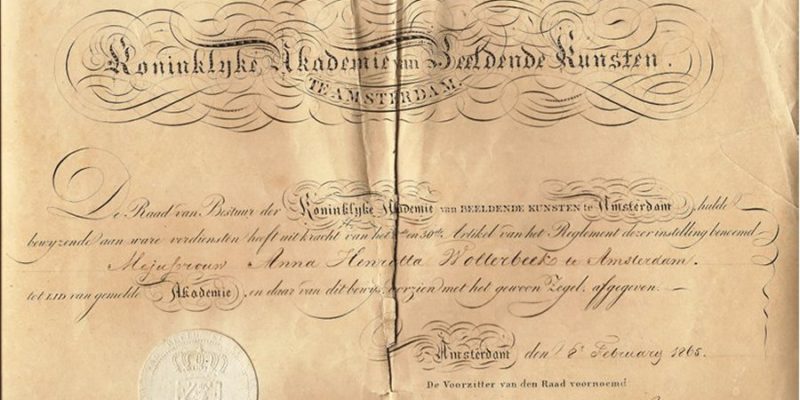 Koninklyke Akademie van Beeldende Kunsten.
TE AMSTERDAM.
De Raad van Bestuur der Koninklyke Akademie van BEELDENDE KUNSTEN te Amsterdam, hulde
bewyzende aan ware verdiensten heeft uit kracht van het en 30ste Artikel van het Reglement dezer instelling benoemd
Mejufvrouw Anna Henrietta Wolterbeek te Amsterdam.
tot LID van gemelde Akademie, en daar van dit bewys, voorzien met het gewoon Zegel, afgegeven.
Amsterdam den 8e February 1865.
De Voorzitter van den Raad voornoemd